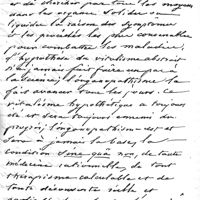 et de chercher par tous les moyens
dans les organes solides et
liquides la raison des symptômes
et les procédés les plus convenables
pour combattre les maladies;
l'hypothèse du vitalisme n'aurait
jamais fait faire un pas à
la science; l'organopathisme la
fait avancer tous les jours. Ce
vitalisme hypothétique a toujours
été et sera toujours ennemi du
progrès; l'organopathisme est et
sera à jamais la base, la
condition sine quâ non, de toute
médecine rationnelle, de tout
thérapisme calculable et de
toute découverte réelle et